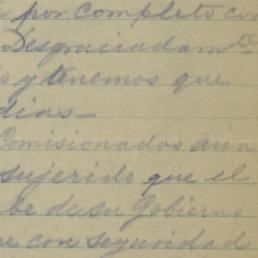 por completo con
Desgraciadamte
s y tenemos que
dias—
Comisionados aún
sujerido que el
be de su Gobierno
e con seguridad